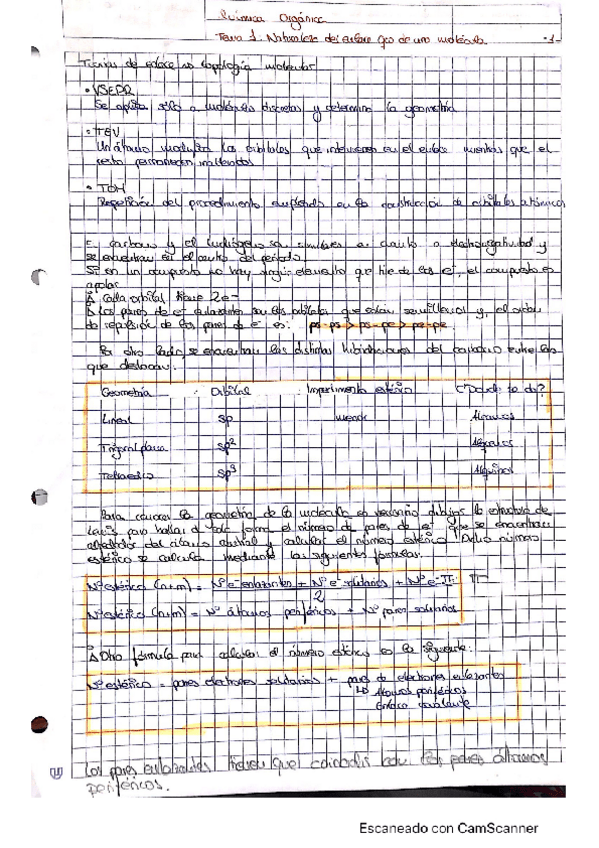 Química Orgánica
Tema 1: Naturaleza del enlace de una molécula. -1-
Teorías de enlace topología molecular
• VSEPR
Se aplica sólo a moléculas discretas y determina la geometría
• TEV
Un átomo los orbitales que intervienen en el enlace mientras que el
resto permanecen
• TOM
Repetición del procedimiento empleado en la construcción de orbitales atómicos
El carbono y el hidrógeno son similares en cuanto a electronegatividad y
se encuentran en el centro del periodo.
Si en un compuesto no hay ningún elemento que tire de los e⁻, el compuesto es
apolar
Cada orbital tiene 2e⁻
Los pares de e⁻ son los orbitales que y, el orden
de repulsión de los pares de e⁻ es: ps-ps > ps-pe > pe-pe.
Por otro lado, se encuentran las distintas hibridaciones del carbono entre las
que destacan:
Geometría Orbital Impedimento estérico ¿Dónde se da?
Lineal sp menor
Trigonal plana sp²
Tetraédrica sp³
Para conocer la geometría de la molécula es necesario dibujar la estructura de
Lewis para hallar de forma el número de pares de e⁻ que se encuentran
alrededor del átomo central y calcular el número estérico. Dicho número
estérico se calcula mediante las siguientes fórmulas:
Nº estérico (n+m) = Nº e⁻ enlazantes + Nº e⁻ solitarios + Nº e⁻ π
2
Nº estérico (n+m) = Nº átomos periféricos + Nº pares solitarios
Otra fórmula para calcular el número estérico es la siguiente:
Nº estérico = pares electrones solitarios + pares de electrones enlazantes
↳ Átomos periféricos
Enlace covalente
Los pares enlazantes tienen que coincidir con los átomos
periféricos.
Escaneado con CamScanner